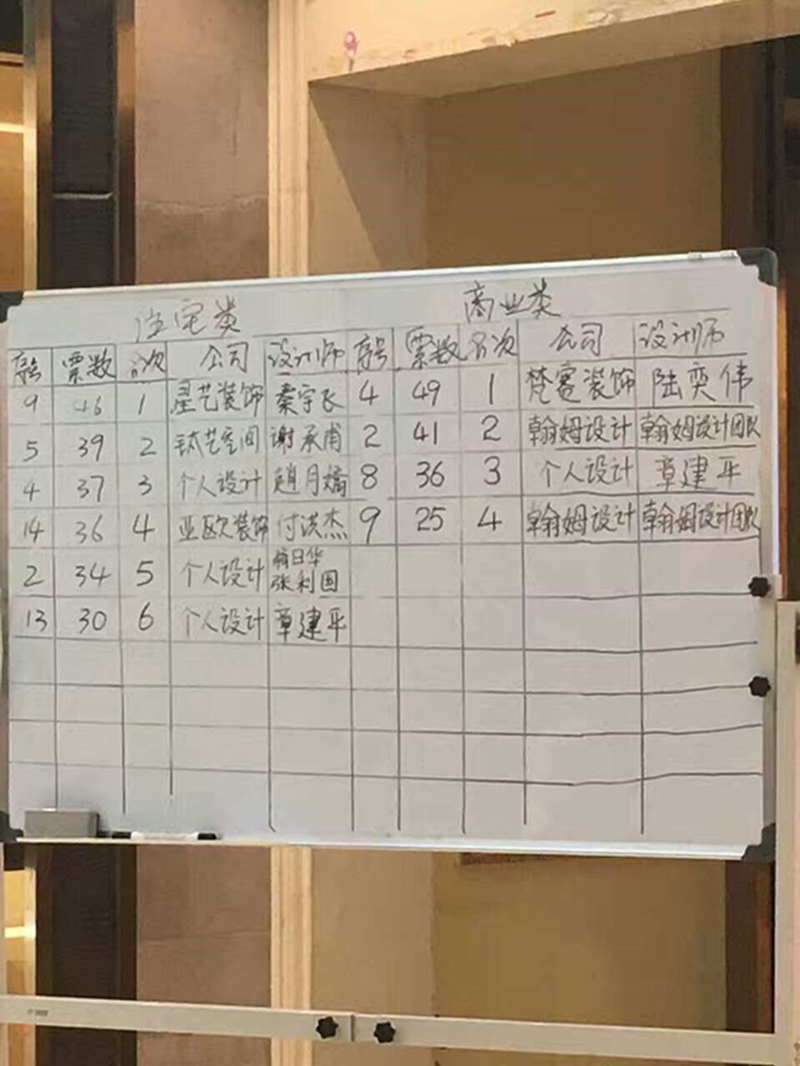 住宅类 商业类
序号 票数 名次 公司 设计师 序号 票数 名次 公司 设计师
9 46 1 星艺装饰 秦宇 4 49 1 梵蜜装饰 陆奕伟
5 39 2 钛艺空间 谢承甫 2 41 2 翰姆设计 翰姆设计团队
4 37 3 个人设计 赵月嫡 8 36 3 个人设计 章建平
14 36 4 亚欧装饰 付洪杰 9 25 4 翰姆设计 翰姆设计团队
2 34 5 个人设计 日华
张利国
13 30 6 个人设计 章建平